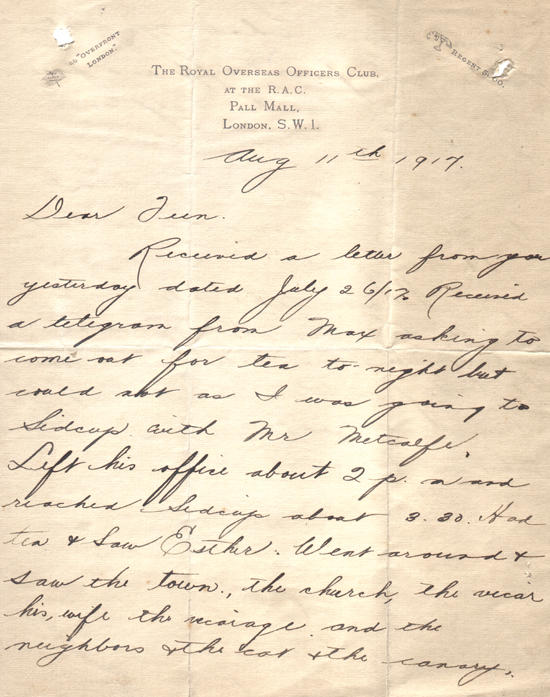 "OVERFRONT
LONDON."
REGENT
THE ROYAL OVERSEAS OFFICERS CLUB,
AT THE R.A.C.
PALL MALL,
LONDON, S.W.1.
Aug 11th 1917.
Dear Teen.
Received a letter from you
yesterday dated July 26/17. Received
a telegram from Max asking to
come out for tea to-night but
could not as I was going to
Sidcup with Mr Metcalfe.
Left his office about 2 p.m and
reached Sidcup about 3.30. Had
tea & saw Esther. Went around &
saw the town., the church, the vicar
his, wife the vicarage and the
neighbors & the cat & the canary.